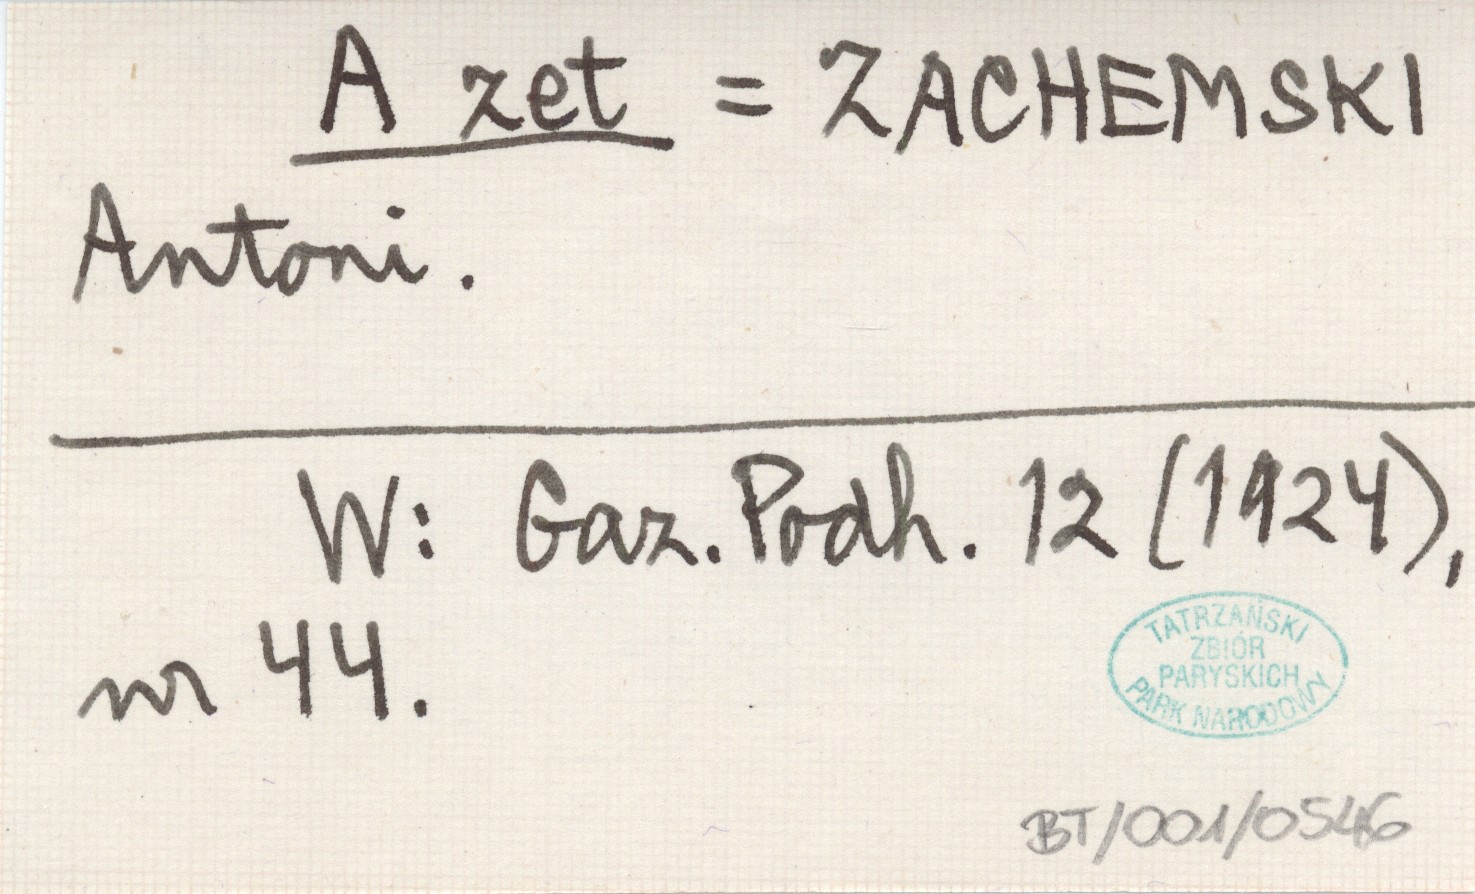 A zet = ZACHEMSKI
Antoni.
W: Gaz. Podh. 12 (1924),
nr 44.
TATRZAŃSKI
ZBIÓR
PARYSKICH
PARK NARODOWY
BT/001/0546